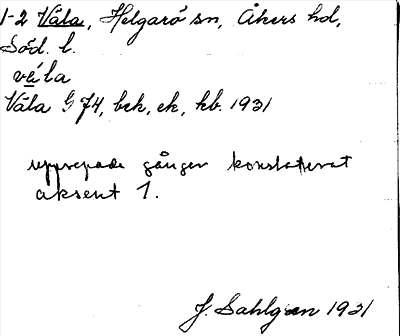 1-2 Våla, Helgarö sn, Åkers hd,
Söd. l.
vǻla
Våla G 74, bek, ek, kb. 1931
upprepade gånger konstaterat
aksent 1.
J. Sahlgren 1931